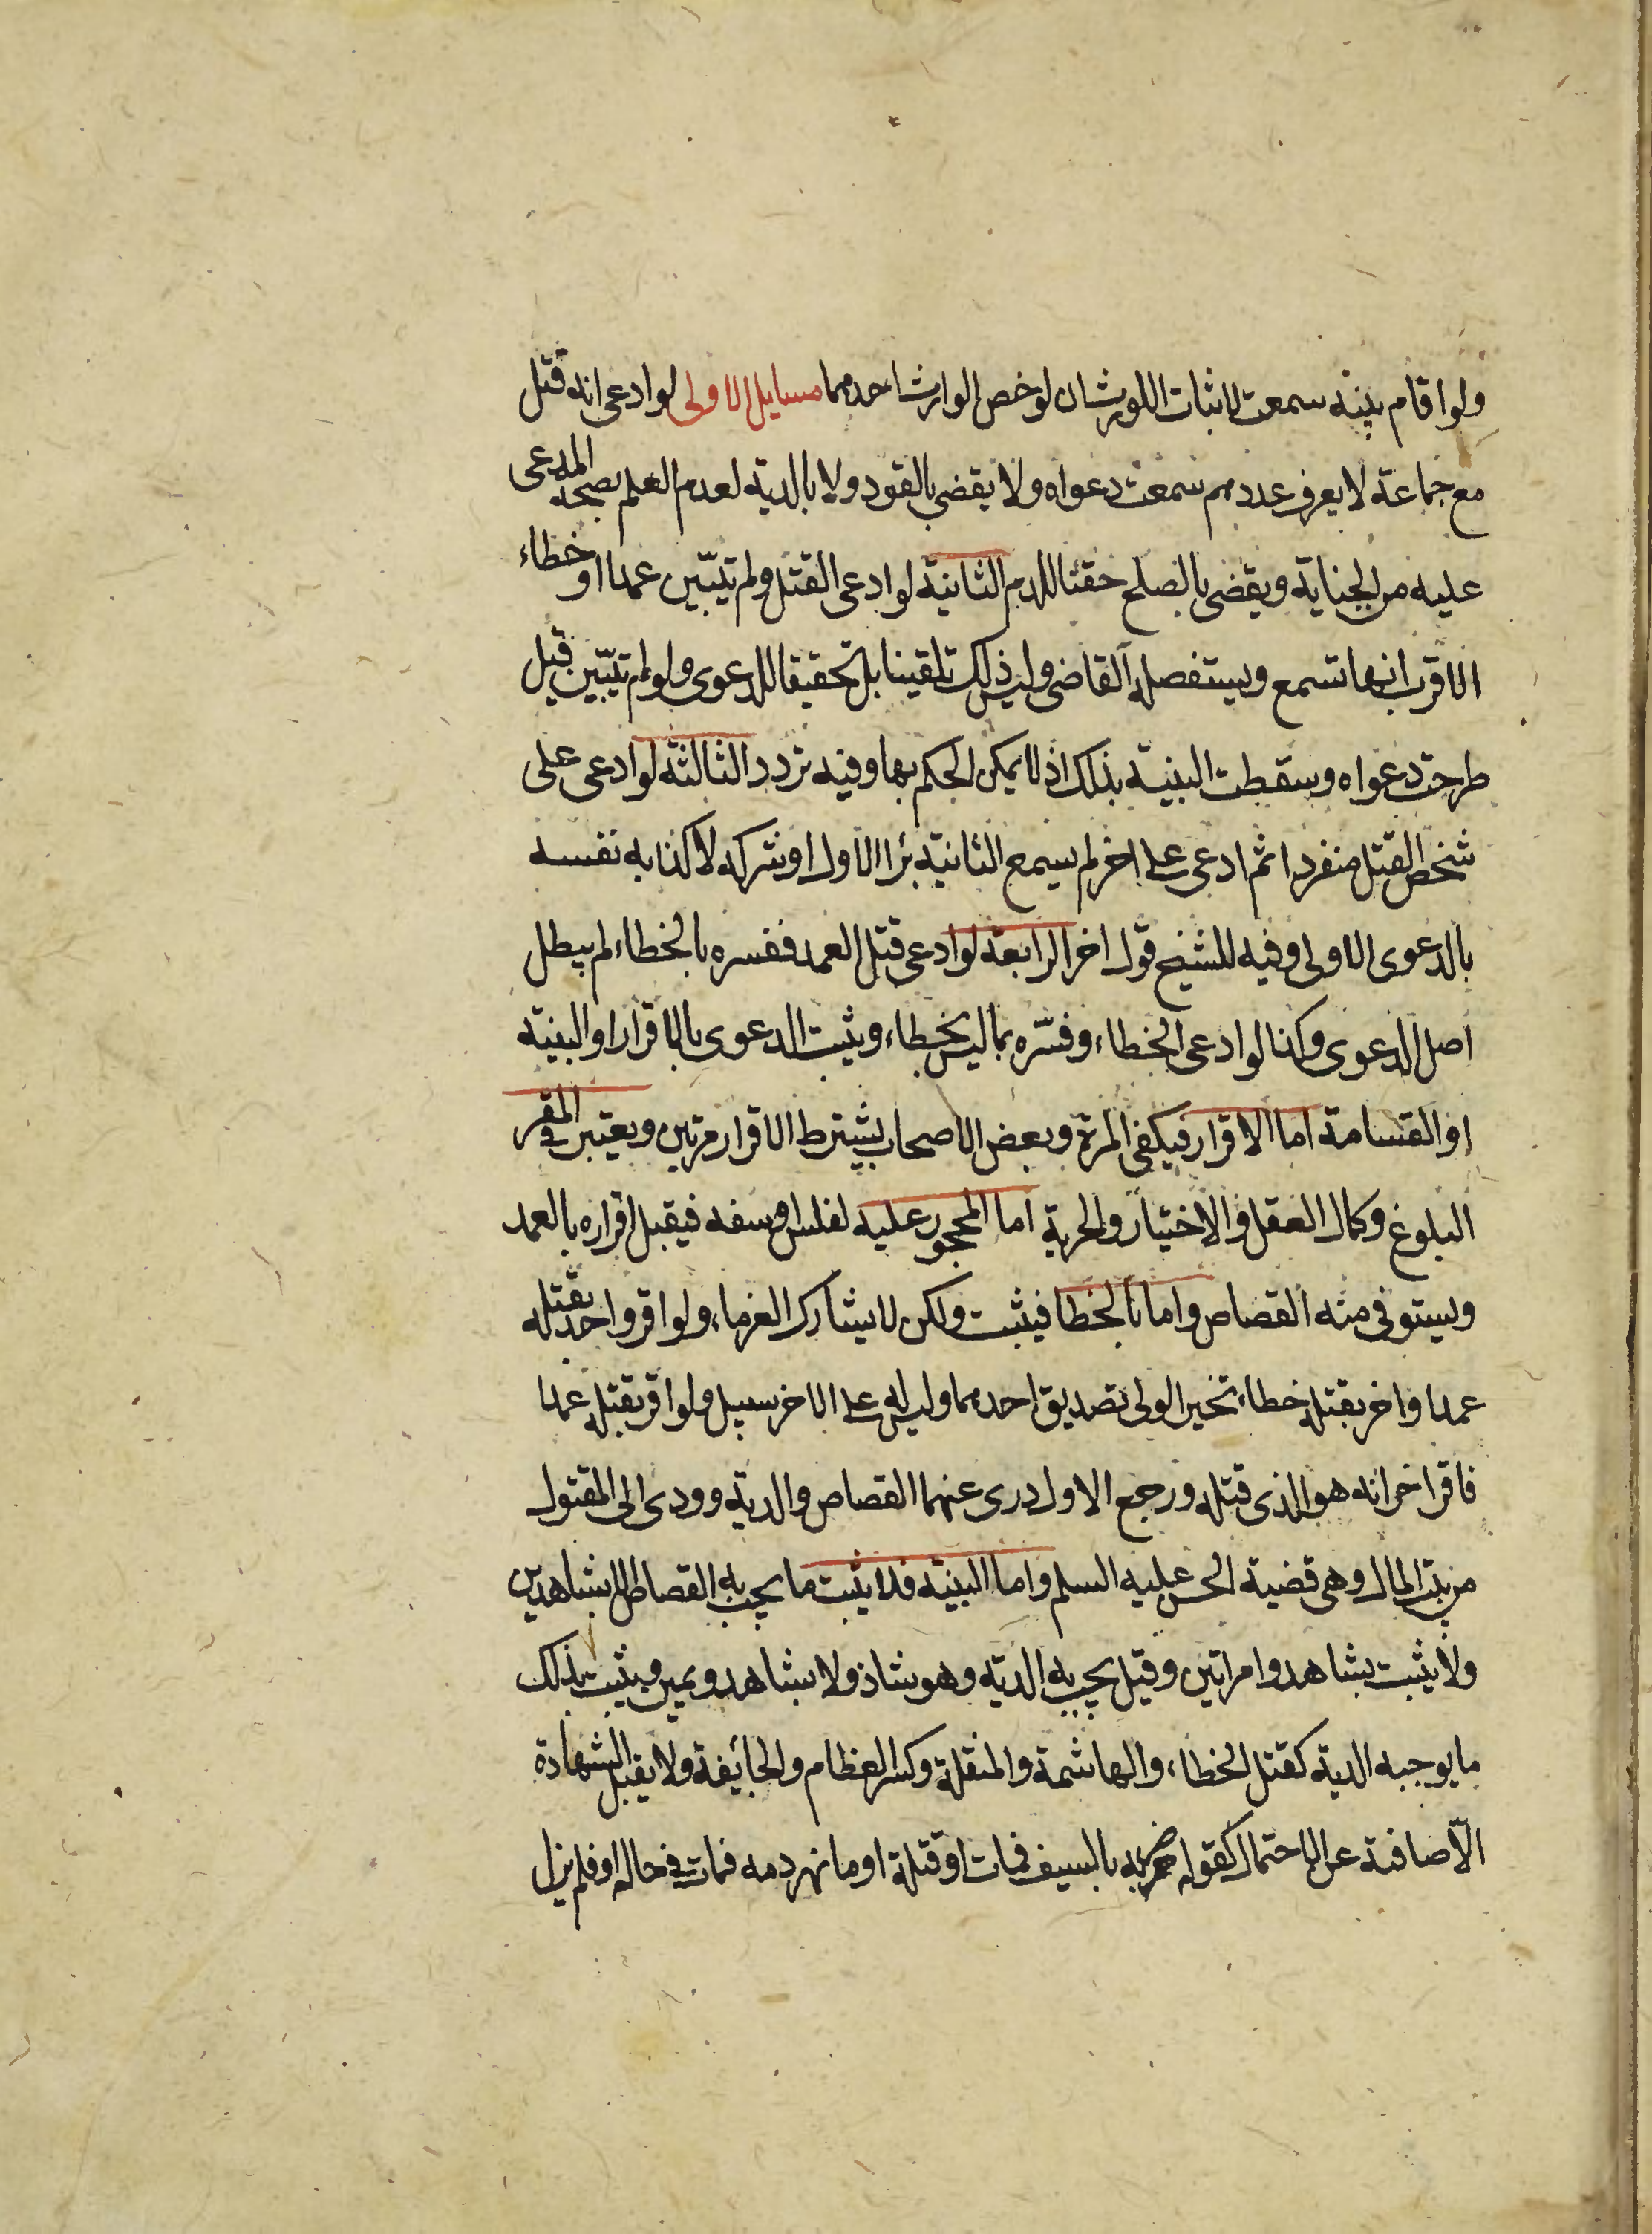 ولو اقام بينة سمعت لاثبات اللوث ان لو خص الوارث احدهما مسايل الاولى لو ادعى انه قتل
مع جماعة لا يعرف عددهم سمعت دعواه ولا يقضى بالقود ولا بالدية لعدم العلم بصحة المدعى
عليه من الجناية ويقضى بالصلح حقنا للدم الثانية لو ادعى القتل ولم تبيّن عمدا او خطاء
الاقرب انها تسمع ويستفصله القاضى وليس ذلك تلقينا بل تحقيقا للدعوى ولو لم تبيّن قيل
طرحت دعواه وسقطت البنية بذلك اذ لا يمكن الحكم بها وفيه تردد الثالثة لو ادعى على
شخص القتل منفردا ثم ادعى على اخر لم يسمع الثانية برا الاول او شركه لاكذابه نفسه
بالدعوى الاولى وفيه للشيخ قول اخر الرابعة لو ادعى قتل العمد ففسره بالخطاء لم يبطل
اصل الدعوى وكذا لو ادعى الخطاء وفسّره بما ليس بخطاء ويثبت الدعوى بالاقرار او البنية
او القسامة اما الاقرار فيكفى المرة وبعض الاصحاب يشترط الاقرار مرتين ويعتبر فى المقر
البلوغ وكمال العقل والاختيار والحرية اما المحجور عليه لفلس او سفه فيقبل اقراره بالعمد
ويستوفى منه القصاص واما بالخطا فيثبت ولكن لا يشارك الغرماء ولو اقر واحد بقتله
عمدا واخر بقتله خطاء تخير الولى تصديق احدهما وليس له على الاخر سبيل ولو اقر بقتله عمدا
فاقر اخر انه هو الذى قتله ورجع الاول درى عنهما القصاص والدية وودى الى المقتول
من بيت المال وهى قضية الحسن عليه السلم واما البنية فلا يثبت ما يجب به القصاص الا بشاهدين
ولا يثبت بشاهد وامراتين وقيل يجب به الدية وهو شاذ ولا بشاهد ويمين ويثبت بذلك
ما يوجبه الدية كقتل الخطاء والهاشمة والمنقلة وكسر العظام والجائفة ولا يقبل الشهادة
الّا صافية عن الاحتمال كقوله ضربه بالسيف فمات او قتلة او ما نهر دمه فمات فى حاله او فلم يزل